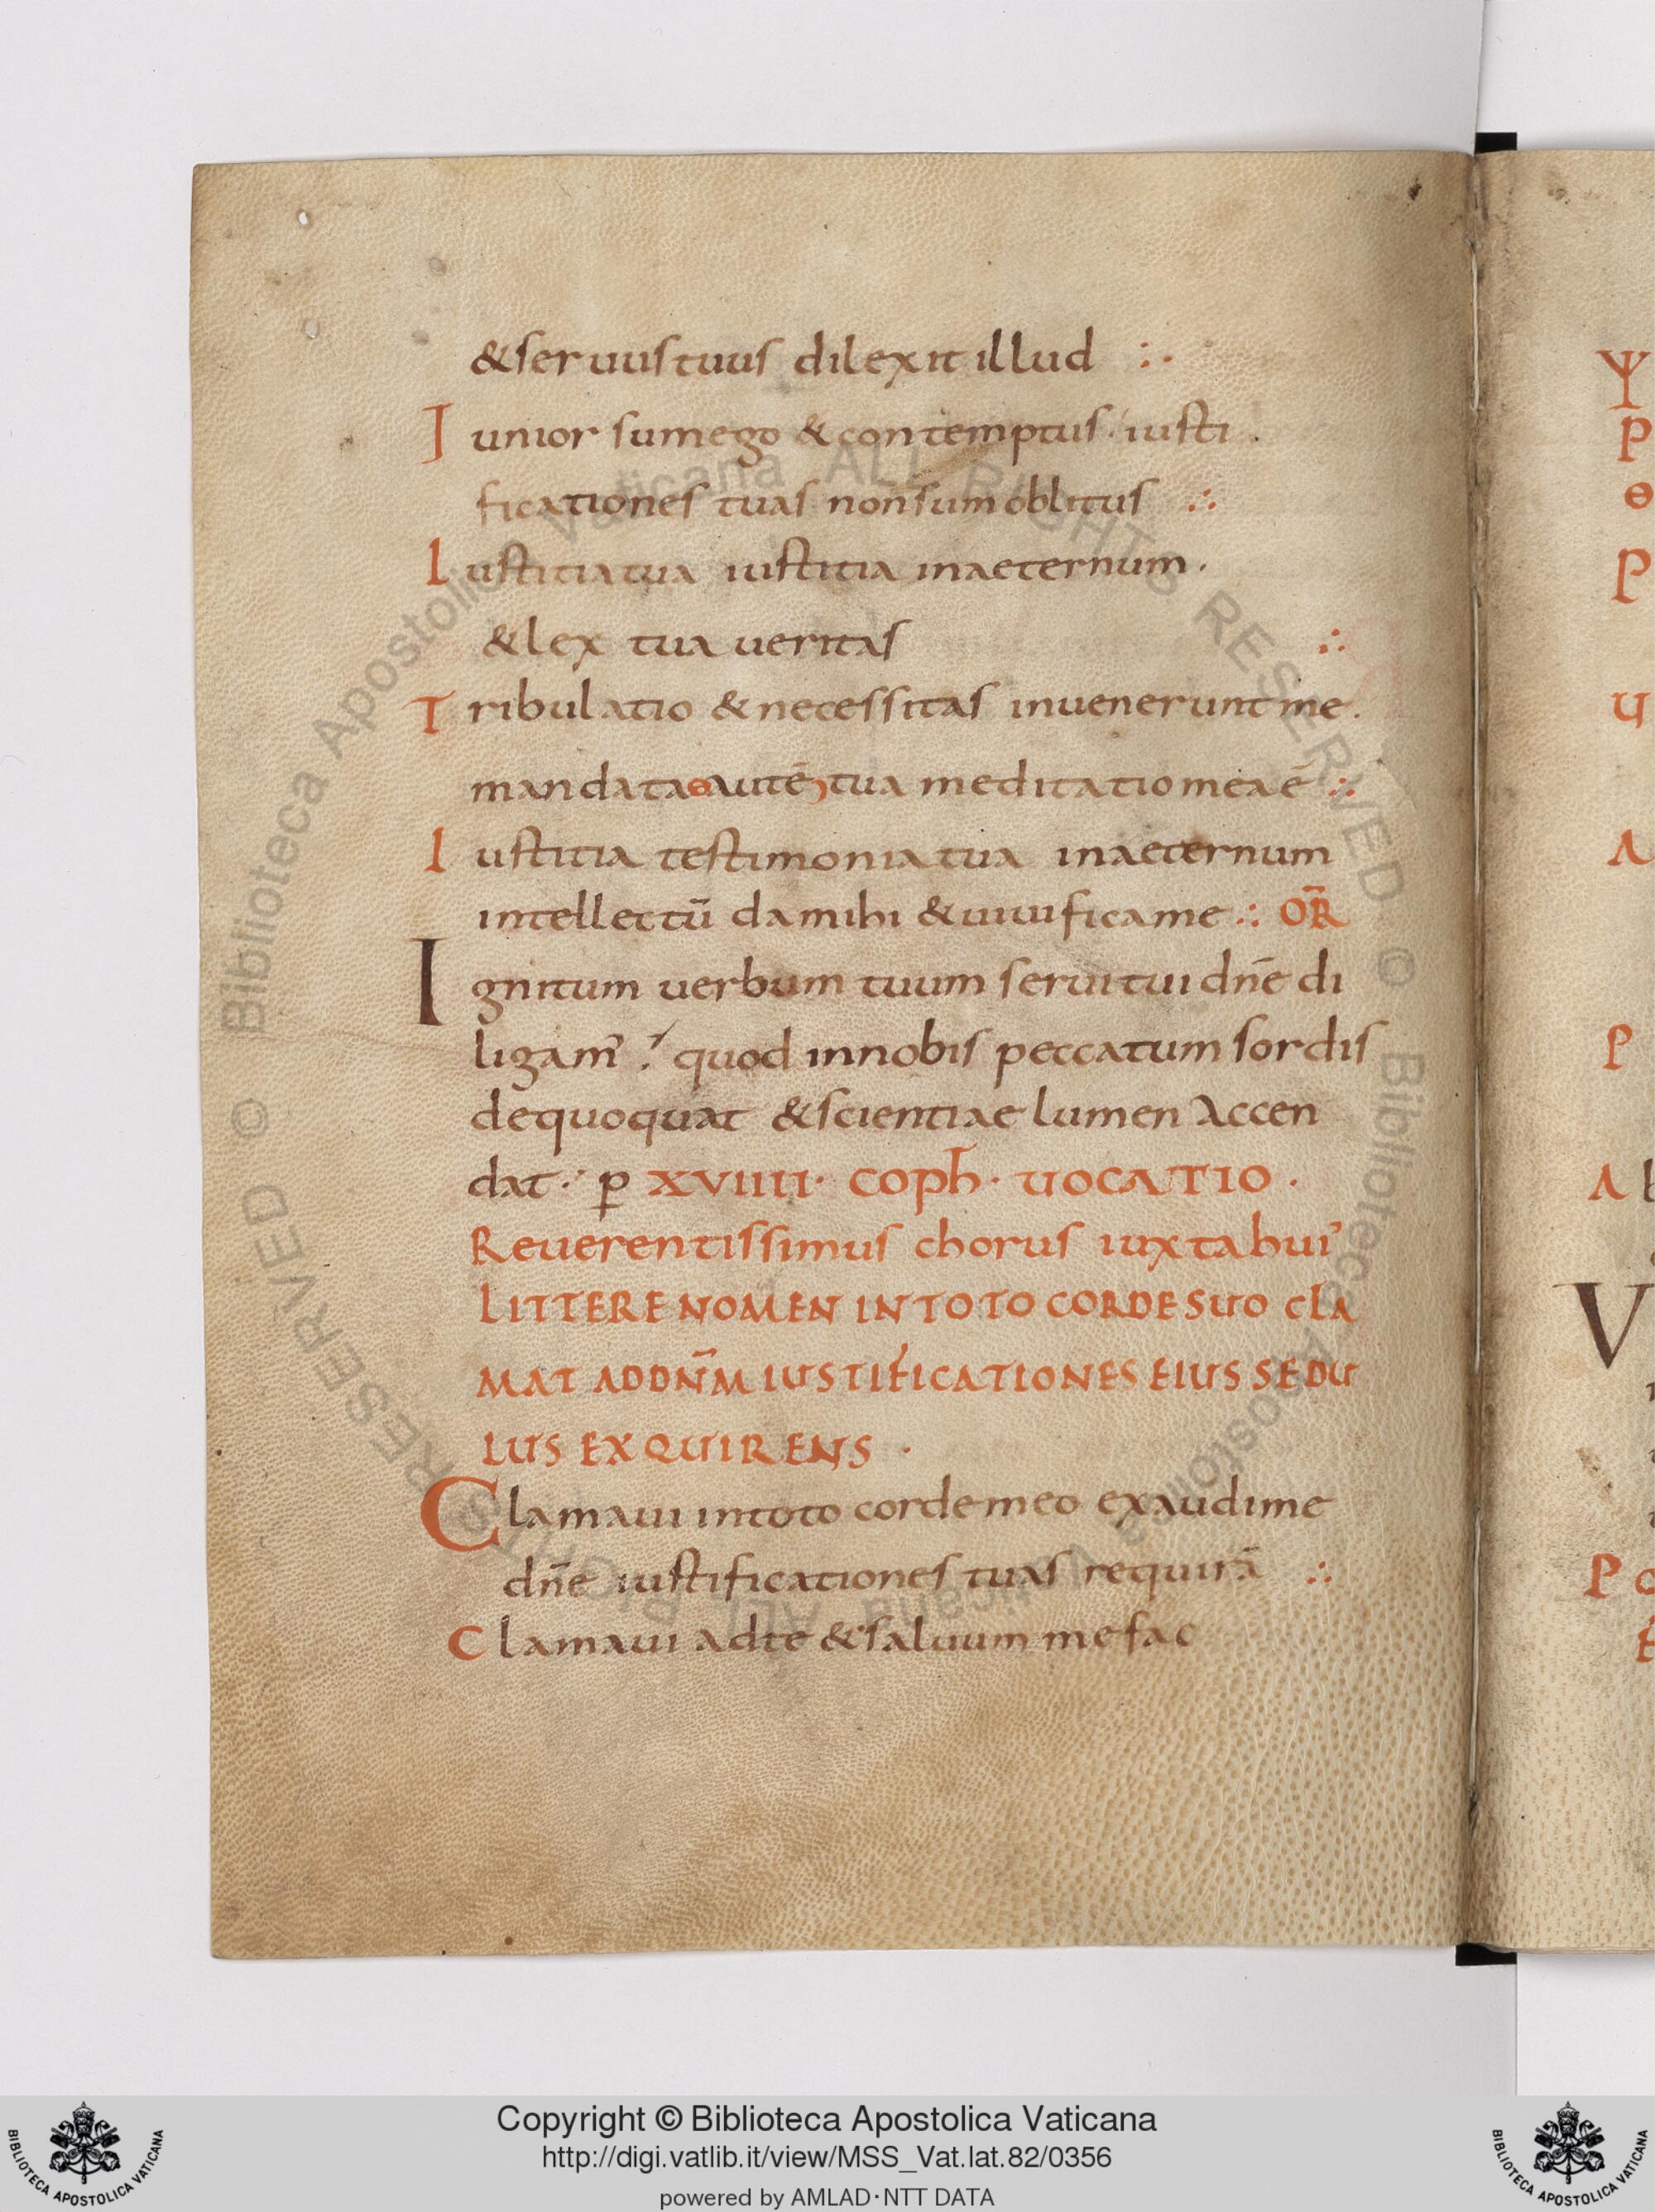 & seruus tuus dilexit illud :.
Iunior sum ego & contemptus · iusti .
ficationes tuas non sum oblitus :.
Iustitia tua iustitia in aeternum .
& lex tua ueritas :.
Tribulatio & necessitas inuenerunt me .
mandata autē tua meditatio mea ē :.
Iustitia testimonia tua in aeternum
intellectū da mihi & uiuifica me :. OR̄
Ignitum uerbum tuum serui tui dn̄e di
ligam' quod in nobis peccatum sordis
dequoquat & scientiae lumen accen
dat · ꝑ XVIIII · coph · UOCATIO .
Reuerentissimus chorus iuxta hui'
LITTERE NOMEN IN TOTO CORDE SUO CLA
MAT AD DN̄M IUSTIFICATIONES EIUS SEDU
LUS EXQUIRENS .
Clamaui in toto corde meo exaudi me
dn̄e iustificationes tuas requirā :.
Clamaui ad te & saluum me fac
Ψ
P
Θ
P
U
A
P
A b
V
P
Copyright © Biblioteca Apostolica Vaticana
http://digi.vatlib.it/view/MSS_Vat.lat.82/0356
powered by AMLAD·NTT DATA
BIBLIOTECA APOSTOLICA VATICANA
BIBLIOTECA APOSTOLICA VATICANA
© Biblioteca Apostolica Vaticana ALL RIGHTS RESERVED © Biblioteca Apostolica Vaticana ALL RIGHTS RESERVED